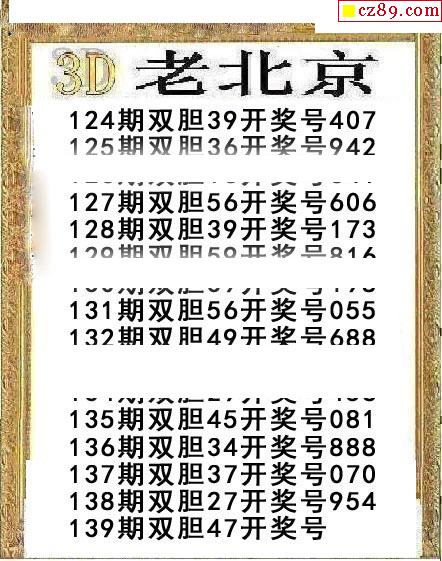 cz89.com
3D 老北京
124期双胆39开奖号407
125期双胆36开奖号942
127期双胆56开奖号606
128期双胆39开奖号173
129期双胆59开奖号816
131期双胆56开奖号055
132期双胆49开奖号688
135期双胆45开奖号081
136期双胆34开奖号888
137期双胆37开奖号070
138期双胆27开奖号954
139期双胆47开奖号